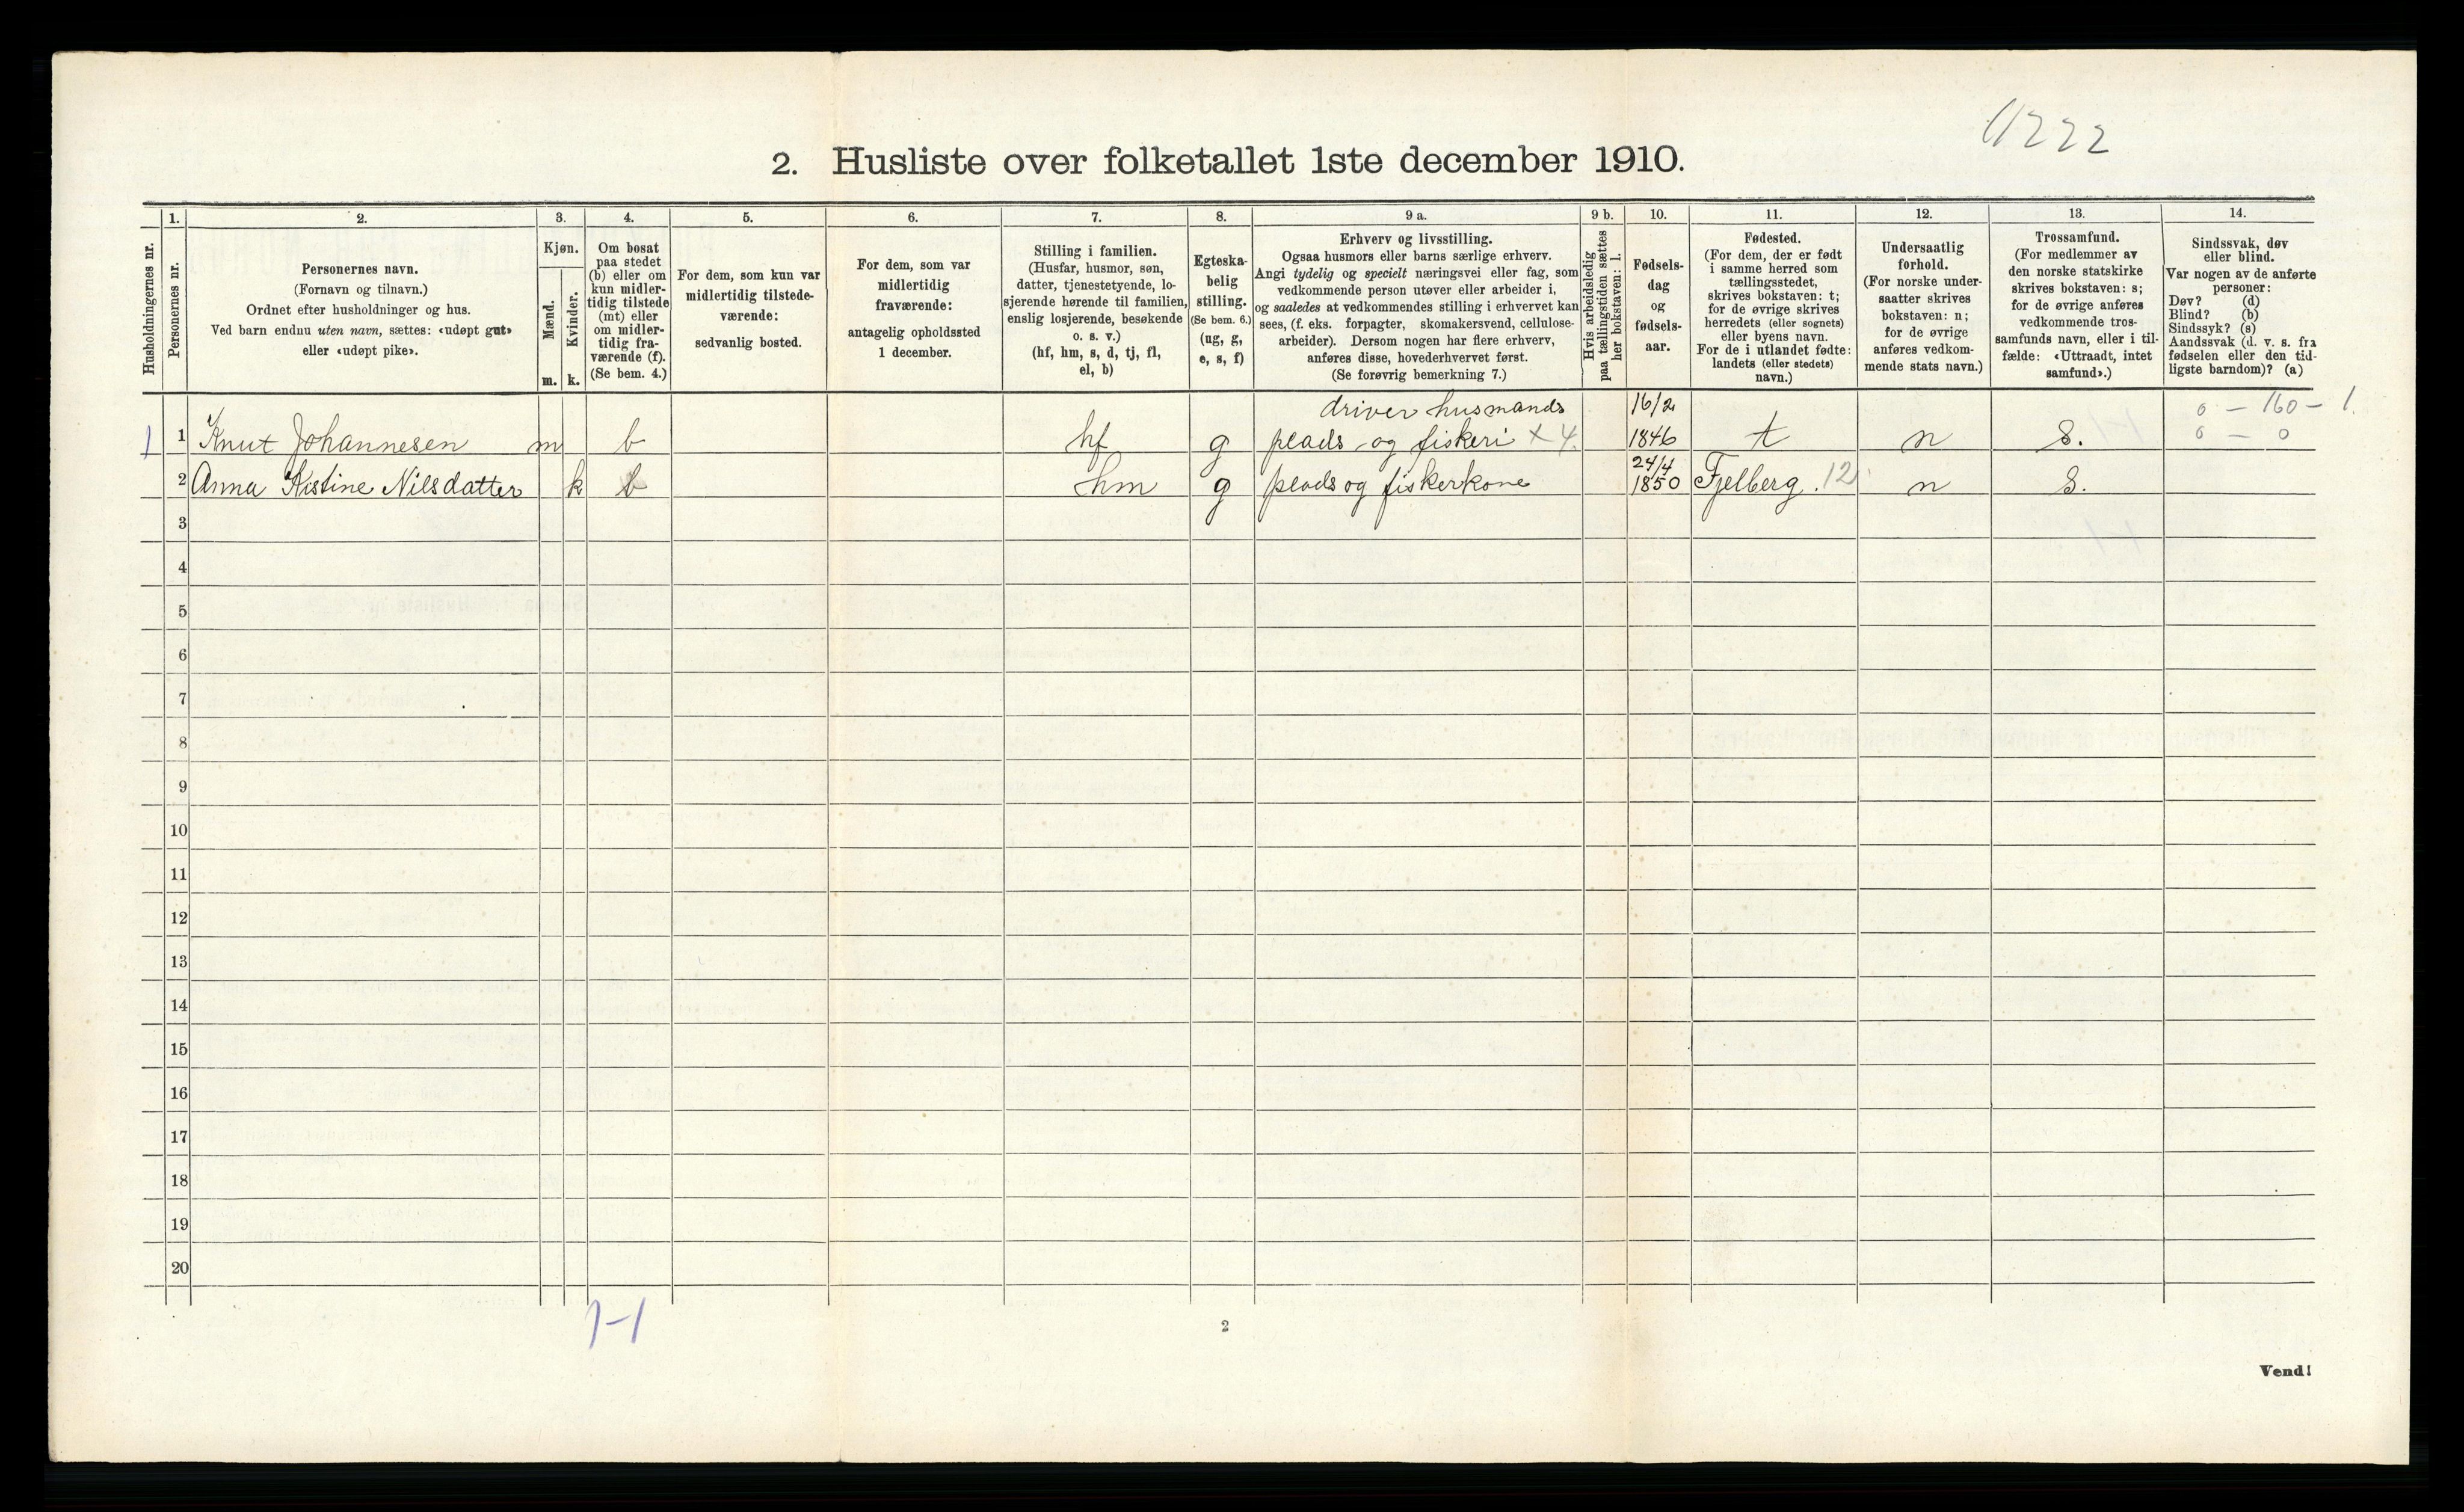 1222
2. Husliste over folketallet 1ste december 1910.
Husholdningernes nr.
1.
Personernes nr.
2.
Personernes navn.
(Fornavn og tilnavn.)
Ordnet efter husholdninger og hus.
Ved barn endnu uten navn, sættes: «udøpt gut»
eller «udøpt pike».
3.
Kjøn.
Mænd.
m.
Kvinder.
k.
4.
Om bosat
paa stedet
(b) eller om
kun midler-
tidig tilstede
(mt) eller
om midler-
tidig fra-
værende (f).
(Se bem. 4.)
5.
For dem, som kun var
midlertidig tilstede-
værende:
sedvanlig bosted.
6.
For dem, som var
midlertidig
fraværende:
antagelig opholdssted
1 december.
7.
Stilling i familien.
(Husfar, husmor, søn,
datter, tjenestetyende, lo-
sjerende hørende til familien,
enslig losjerende, besøkende
o. s. v.)
(hf, hm, s, d, tj, fl,
el, b)
8.
Egteska-
belig
stilling.
(Se bem. 6.)
(ug, g,
e, s, f)
9 a.
Erhverv og livsstilling.
Ogsaa husmors eller barns særlige erhverv.
Angi tydelig og specielt næringsvei eller fag, som
vedkommende person utøver eller arbeider i,
og saaledes at vedkommendes stilling i erhvervet kan
sees, (f. eks. forpagter, skomakersvend, cellulose-
arbeider). Dersom nogen har flere erhverv,
anføres disse, hovederhvervet først.
(Se forøvrig bemerkning 7.)
9 b.
Hvis arbeidsledig
paa tællingstiden sættes
her bokstaven: l.
10.
Fødsels-
dag
og
fødsels-
aar.
11.
Fødested.
(For dem, der er født
i samme herred som
tællingsstedet,
skrives bokstaven: t;
for de øvrige skrives
herredets (eller sognets)
eller byens navn.
For de i utlandet fødte:
landets (eller stedets)
navn.)
12.
Undersaatlig
forhold.
(For norske under-
saatter skrives
bokstaven: n;
for de øvrige
anføres vedkom-
mende stats navn.)
13.
Trossamfund.
(For medlemmer av
den norske statskirke
skrives bokstaven: s;
for de øvrige anføres
vedkommende tros-
samfunds navn, eller i til-
fælde: «Uttraadt, intet
samfund».)
14.
Sindssvak, døv
eller blind.
Var nogen av de anførte
personer:
Døv? (d)
Blind? (b)
Sindssyk? (s)
Aandssvak (d. v. s. fra
fødselen eller den tid-
ligste barndom)? (a)
driver husmands 16/2 0 – 160 – 1.
1 1 Knut Johannesen m b hf g plads og fiskeri x 4. 1846 t n S. 0 – 0
24/4
2 Anna Kistine Nilsdatter k b hm g plads og fiskerkone 1850 Fjelberg. 12 n S.
3
4
5
6
7
8
9
10
11
12
13
14
15
16
17
18
19
20
1–1
2
Vend!